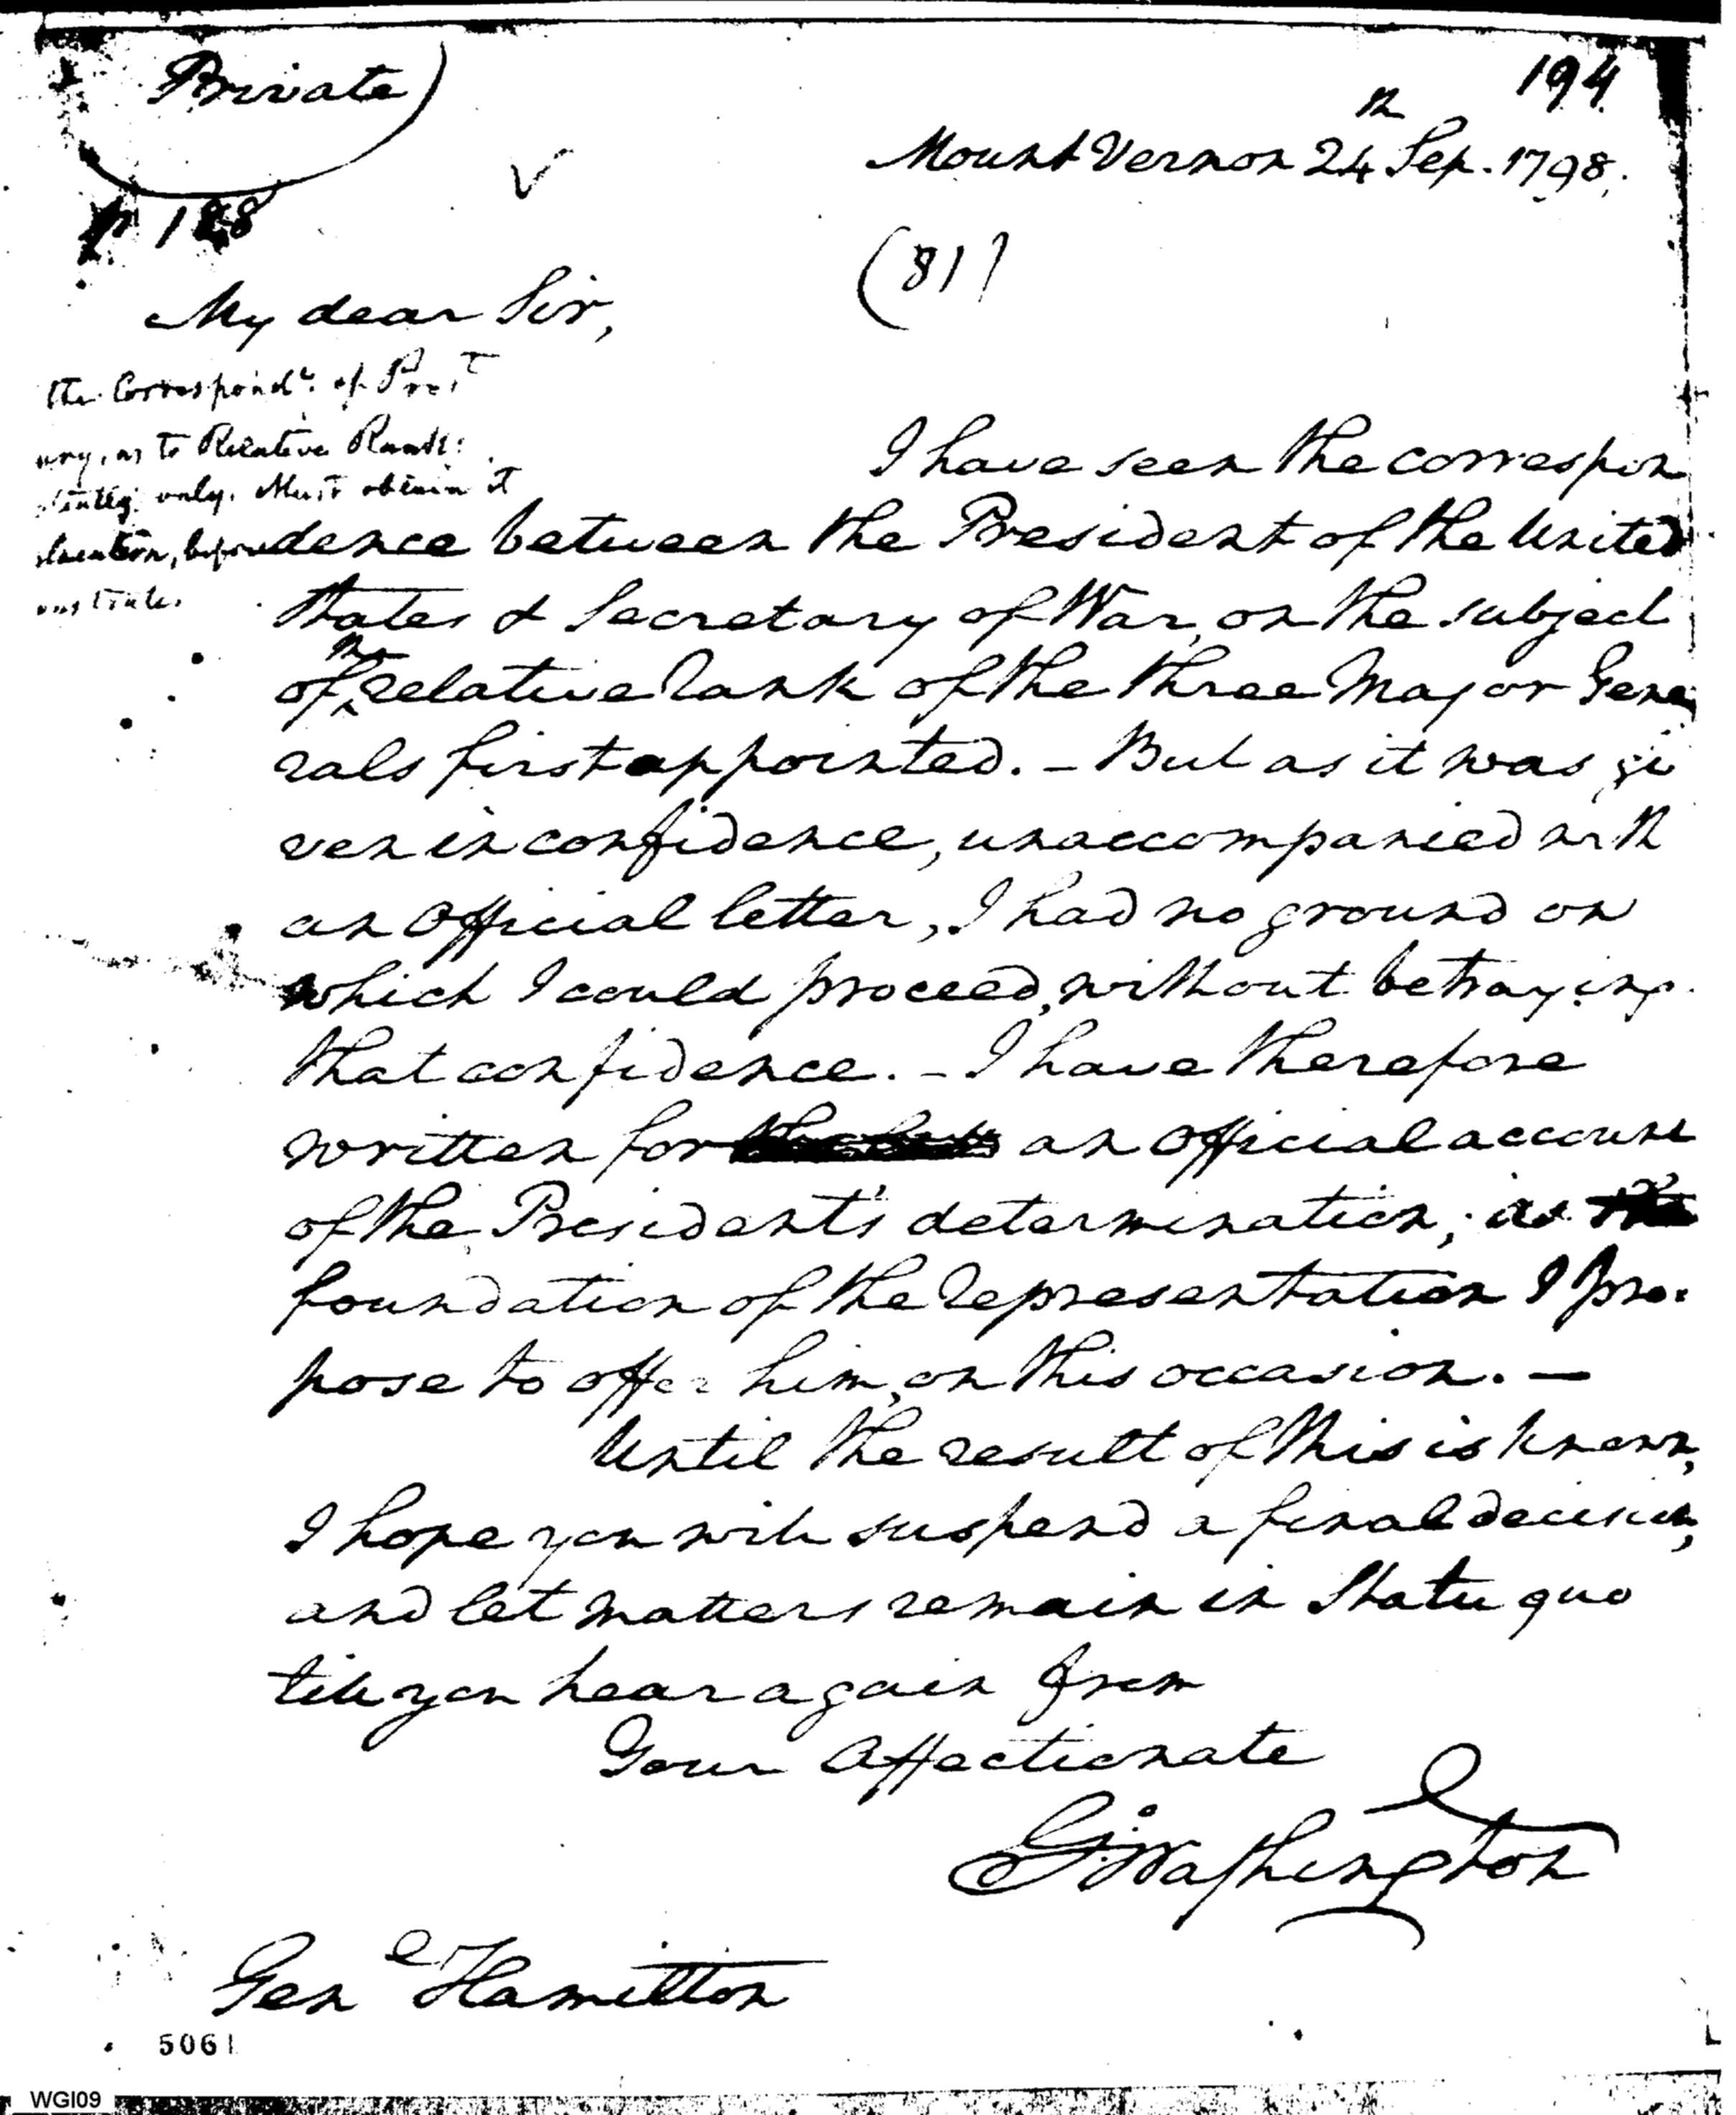 Private
194
Mount Vernon 24th Sep. 1798.
p 188
(81)
My dear Sir,
the Correspondt. of Prest
ury, as to Relative Rank:
only. Must obtain it
I have seen the correspon
dence between the President of the United
States & Secretary of War, on the subject
of the relative rank of the three Major Gene
rals first appointed. – But as it was gi
ven in confidence, unaccompanied with
an Official letter, I had no ground on
which I could proceed, without betraying
that confidence. – I have therefore
written for an Official account
of the President's determination, as the
foundation of the representation I pro.
pose to offer him, on this occasion. –
Until the result of this is known,
I hope you will suspend a final decision,
and let matters remain in Statu quo
till you hear again from
Your Affectionate
Go: Washington
Genl Hamilton
5061
WGI09